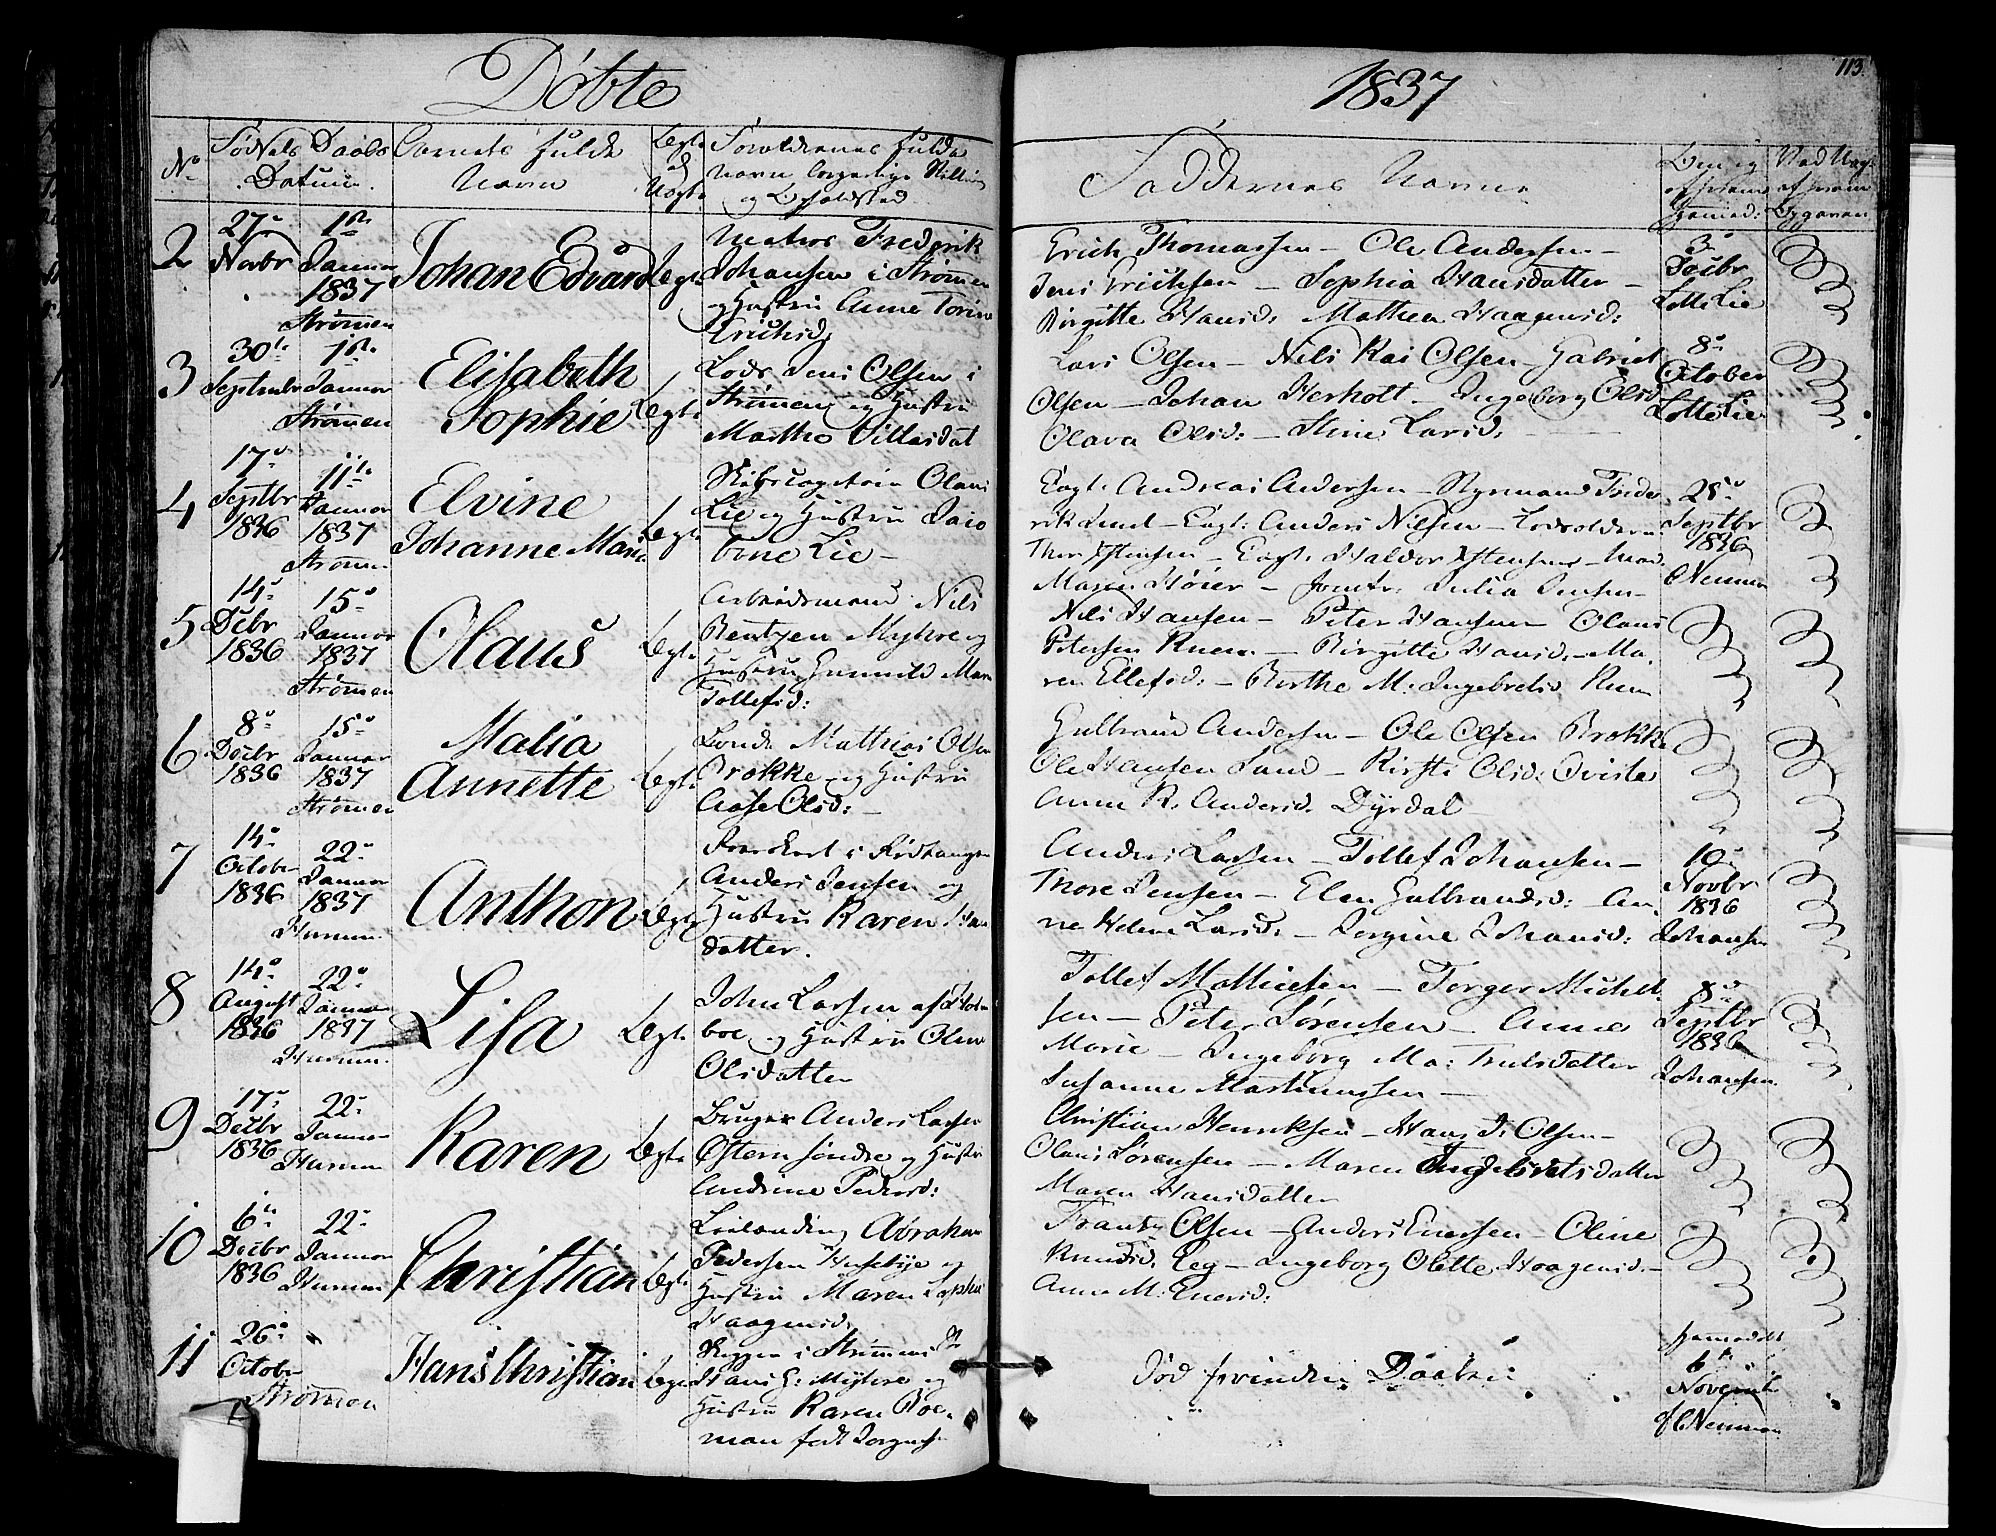 Døbte
1837
113.
No
Fødsels Daabs
Datum.
Barnets fulde
Navn
Egte
el
Uegte
Forældrenes fulde
Navn borgerlige Stilling
og Opholdsted
Faddernes Navne
2
27de
Novbr
1ste
Januar
1837
Strømmen
Johan Edvard
Egte
Matros Frederik
Johansen i Strømmen
og Hustru Anne Torine
Erichsd.
Erich Thomassen — Ole Andersen —
Jens Erichsen — Sophia Hansdatter —
Birgitte Hansd: Mathea Haagensd:
Lotte Lie
3
30te
September
1ste
Januar
Strømmen
Elisabeth
Sophie
Egte
Lods Jens Olsen i
Strømmen og Hustru
Marthe
Lars Olsen — Nils Kai Olsen — Gabriel
Olsen — Johan Herholt — Ingeborg Olsd
Olava Olsd: — Stine Larsd:
8de
October
Lotte Lie
4
17de
Septbr
1836
11te
Januar
1837
Strømm.
Elvine
Johanne Marie
Egte
Skibscapitain Olaus
Lie og Hustru Jaco
bine Lie —
Eagt: Andreas Andersen — Styrmand Frede
rik Lund — Eagt: Anders Nilsen — Lodsolderm:
Maren Høier — Jomfr. Julia Jensen —
Septbr
1836
Neuman
5
14de
Decbr
1836
15de
Januar
1837
Strømmen
Olaus
Egte
Arbeidsmand Nils
Bentzen Myhre og
Hustru Gunnild Marie
Tollefsd:
Nils Hansen — Peter Hansen Olaus
Petersen — Birgitte Hansd. — Ma
ren Ellefsd: — Berthe M: Ingebretsd
6
8de
Decbr
1836
15de
Januar
1837
Strømmen
Malia
Annette
Egte
Bonde Mathias Olsen
Brokke og Hustru
Aase Olsd: —
Gulbrand Andersen — Ole Olsen Brokke
Ole Hansen Sand — Kirsti Olsd:
Anne R. Andersd. Dyrdal
7
14de
October
1836
22de
Januar
1837
Hurum.
Anthon
Egte
Anders Jensen og
Hustru Karen Han
datter.
Anders Larsen — Tollef Johansen —
Thore Jensen — Elen Gulbrandsd: An
ne Helene Larsd: — Jorgine Johansd:
10de
Novbr
1836
Johansen
8
14de
August
1836
22de
Januar
1837
Hurum.
Lisa
Egte
John Larsen af Holm
boe og Hustru Oline
Olsdatter
Tollef Mathiesen — Torger Michel
sen — Peter Sørensen — Anne
Marie — Ingeborg Ma: Trulsdatter
Susanne Martinussen —
8de
Septbr
1836
Johansen
9
17de
Decbr
1836
22de
Januar
Hurum
Karen
Egte
Bruger Anders Larsen
Østern søndre og Hustru
Andrine Pedersd:
Christian Henriksen — Hans J. Olsen —
Olaus Sørensen — Maren Ingebretsdatter
Maren Hansdatter
10
6te
Decbr
1836
22de
Januar
Hurum
Christian
Egte
Leilænding Abraham
Pedersen Husebye og
Hustru Maren Sophie
Haagensd.
Frants Olsen — Anders Enersen — Oline
Knudsd. Eeg — Ingeborg Olette Haagensd. —
Anne M: Enersd:
11
26de
October
Strømmen
Hans Christian
Egte
Skipper i Strømmen
Hans G: Myhre og
Hustru Karen Boe
man født Jorgensen
Død forinden Daaben
hjemmedøbt
6te
November
af Neuman